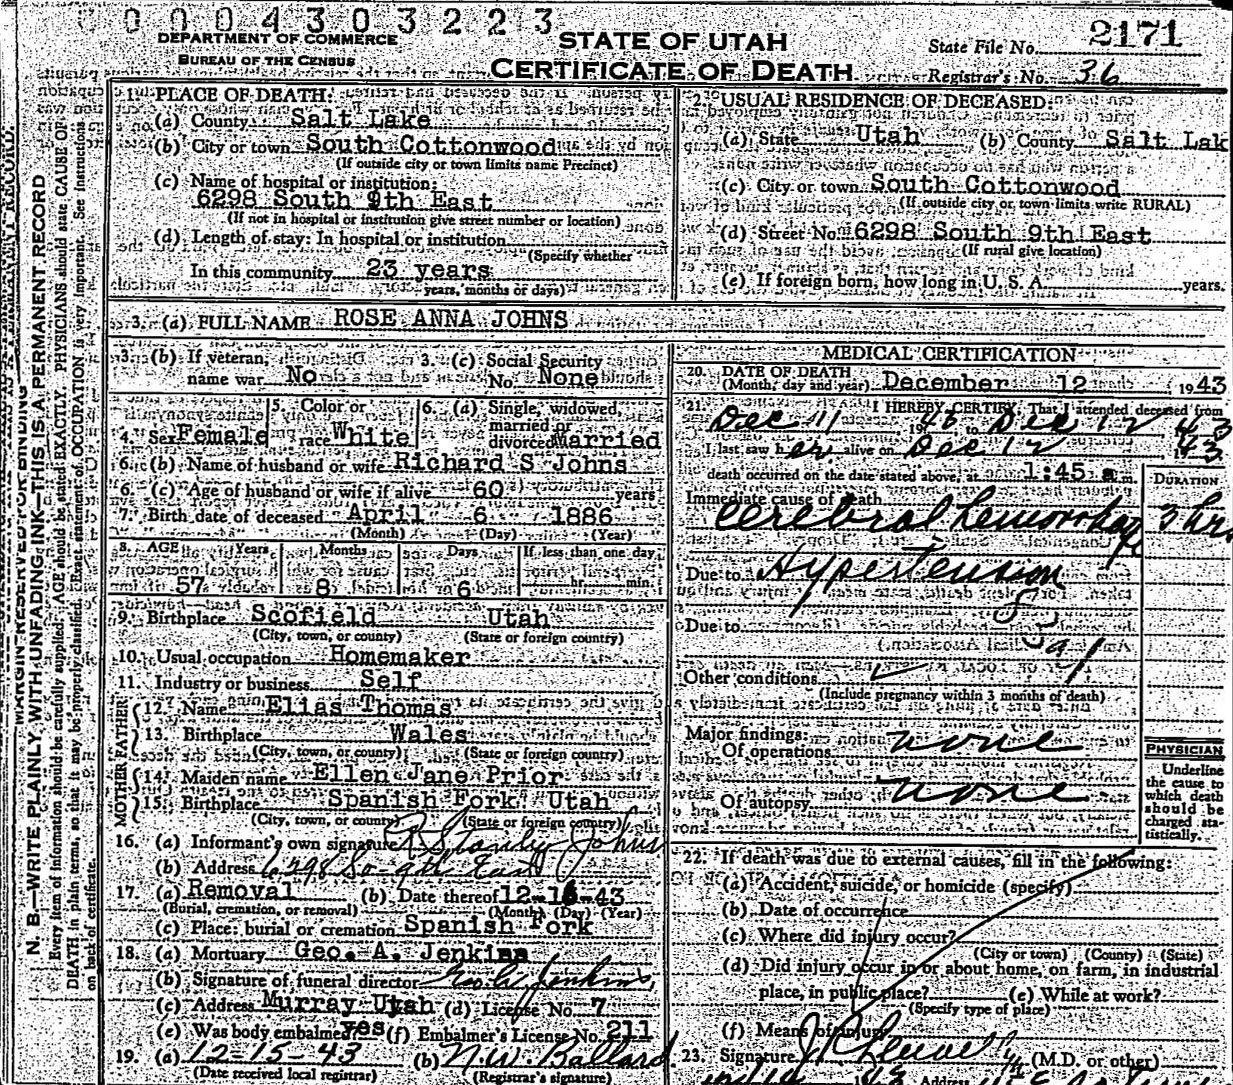 0004303223
DEPARTMENT OF COMMERCE
BUREAU OF THE CENSUS
STATE OF UTAH
CERTIFICATE OF DEATH
State File No. 2171
Registrar's No. 36
MARGIN RESERVED FOR BINDING
N. B.—WRITE PLAINLY, WITH UNFADING INK—THIS IS A PERMANENT RECORD
Every item of information should be carefully supplied. AGE should be stated EXACTLY. PHYSICIANS should state CAUSE OF
DEATH in plain terms, so that it may be properly classified. Exact statement of OCCUPATION is very important. See instructions
on back of certificate.
1. PLACE OF DEATH:
(a) County Salt Lake
(b) City or town South Cottonwood
(If outside city or town limits name Precinct)
(c) Name of hospital or institution:
6298 South 9th East
(If not in hospital or institution give street number or location)
(d) Length of stay: In hospital or institution
(Specify whether
In this community 23 years
years, months or days)
2. USUAL RESIDENCE OF DECEASED:
(a) State Utah (b) County Salt Lak
(c) City or town South Cottonwood
(If outside city or town limits write RURAL)
(d) Street No. 6298 South 9th East
(If rural give location)
(e) If foreign born, how long in U. S. A. years.
3. (a) FULL NAME ROSE ANNA JOHNS
3. (b) If veteran, name war No
3. (c) Social Security No. None
4. Sex Female
5. Color or race White
6. (a) Single, widowed, married or divorced Married
6. (b) Name of husband or wife Richard S Johns
6. (c) Age of husband or wife if alive 60 years
7. Birth date of deceased April 6 1886
(Month) (Day) (Year)
8. AGE Years Months Days If less than one day
57 8 6 hr. min.
9. Birthplace Scofield Utah
(City, town, or county) (State or foreign country)
10. Usual occupation Homemaker
11. Industry or business Self
FATHER
12. Name Elias Thomas
13. Birthplace Wales
(City, town, or county) (State or foreign country)
MOTHER
14. Maiden name Ellen Jane Prior
15. Birthplace Spanish Fork Utah
(City, town, or county) (State or foreign country)
16. (a) Informant's own signature R Stanley Johns
(b) Address 6298 So-9th East
17. (a) Removal (b) Date thereof 12-16-43
(Burial, cremation, or removal) (Month) (Day) (Year)
(c) Place: burial or cremation Spanish Fork
18. (a) Mortuary Geo. A. Jenkins
(b) Signature of funeral director Geo. A. Jenkins
(c) Address Murray Utah (d) License No. 7
(e) Was body embalmed yes (f) Embalmer's License No. 211
19. (a) 12-15-43 (b) N.W. Ballard
(Date received local registrar) (Registrar's signature)
MEDICAL CERTIFICATION
20. DATE OF DEATH
(Month, day and year) December 12 1943
21. I HEREBY CERTIFY, That I attended deceased from
Dec 11 19 to Dec 12 43
I last saw her alive on Dec 12 1943
death occurred on the date stated above, at 1:45 a.m.
DURATION
Immediate cause of death
Cerebral hemorrhage 3 hrs
Due to Hypertension
Due to
Other conditions
(Include pregnancy within 3 months of death)
Major findings:
Of operations none
Of autopsy none
PHYSICIAN
Underline
the cause to
which death
should be
charged sta-
tistically.
22. If death was due to external causes, fill in the following:
(a) Accident, suicide, or homicide (specify)
(b) Date of occurrence
(c) Where did injury occur?
(City or town) (County) (State)
(d) Did injury occur in or about home, on farm, in industrial
place, in public place? (e) While at work?
(Specify type of place)
(f) Means of injury
23. Signature (M.D. or other)
Address